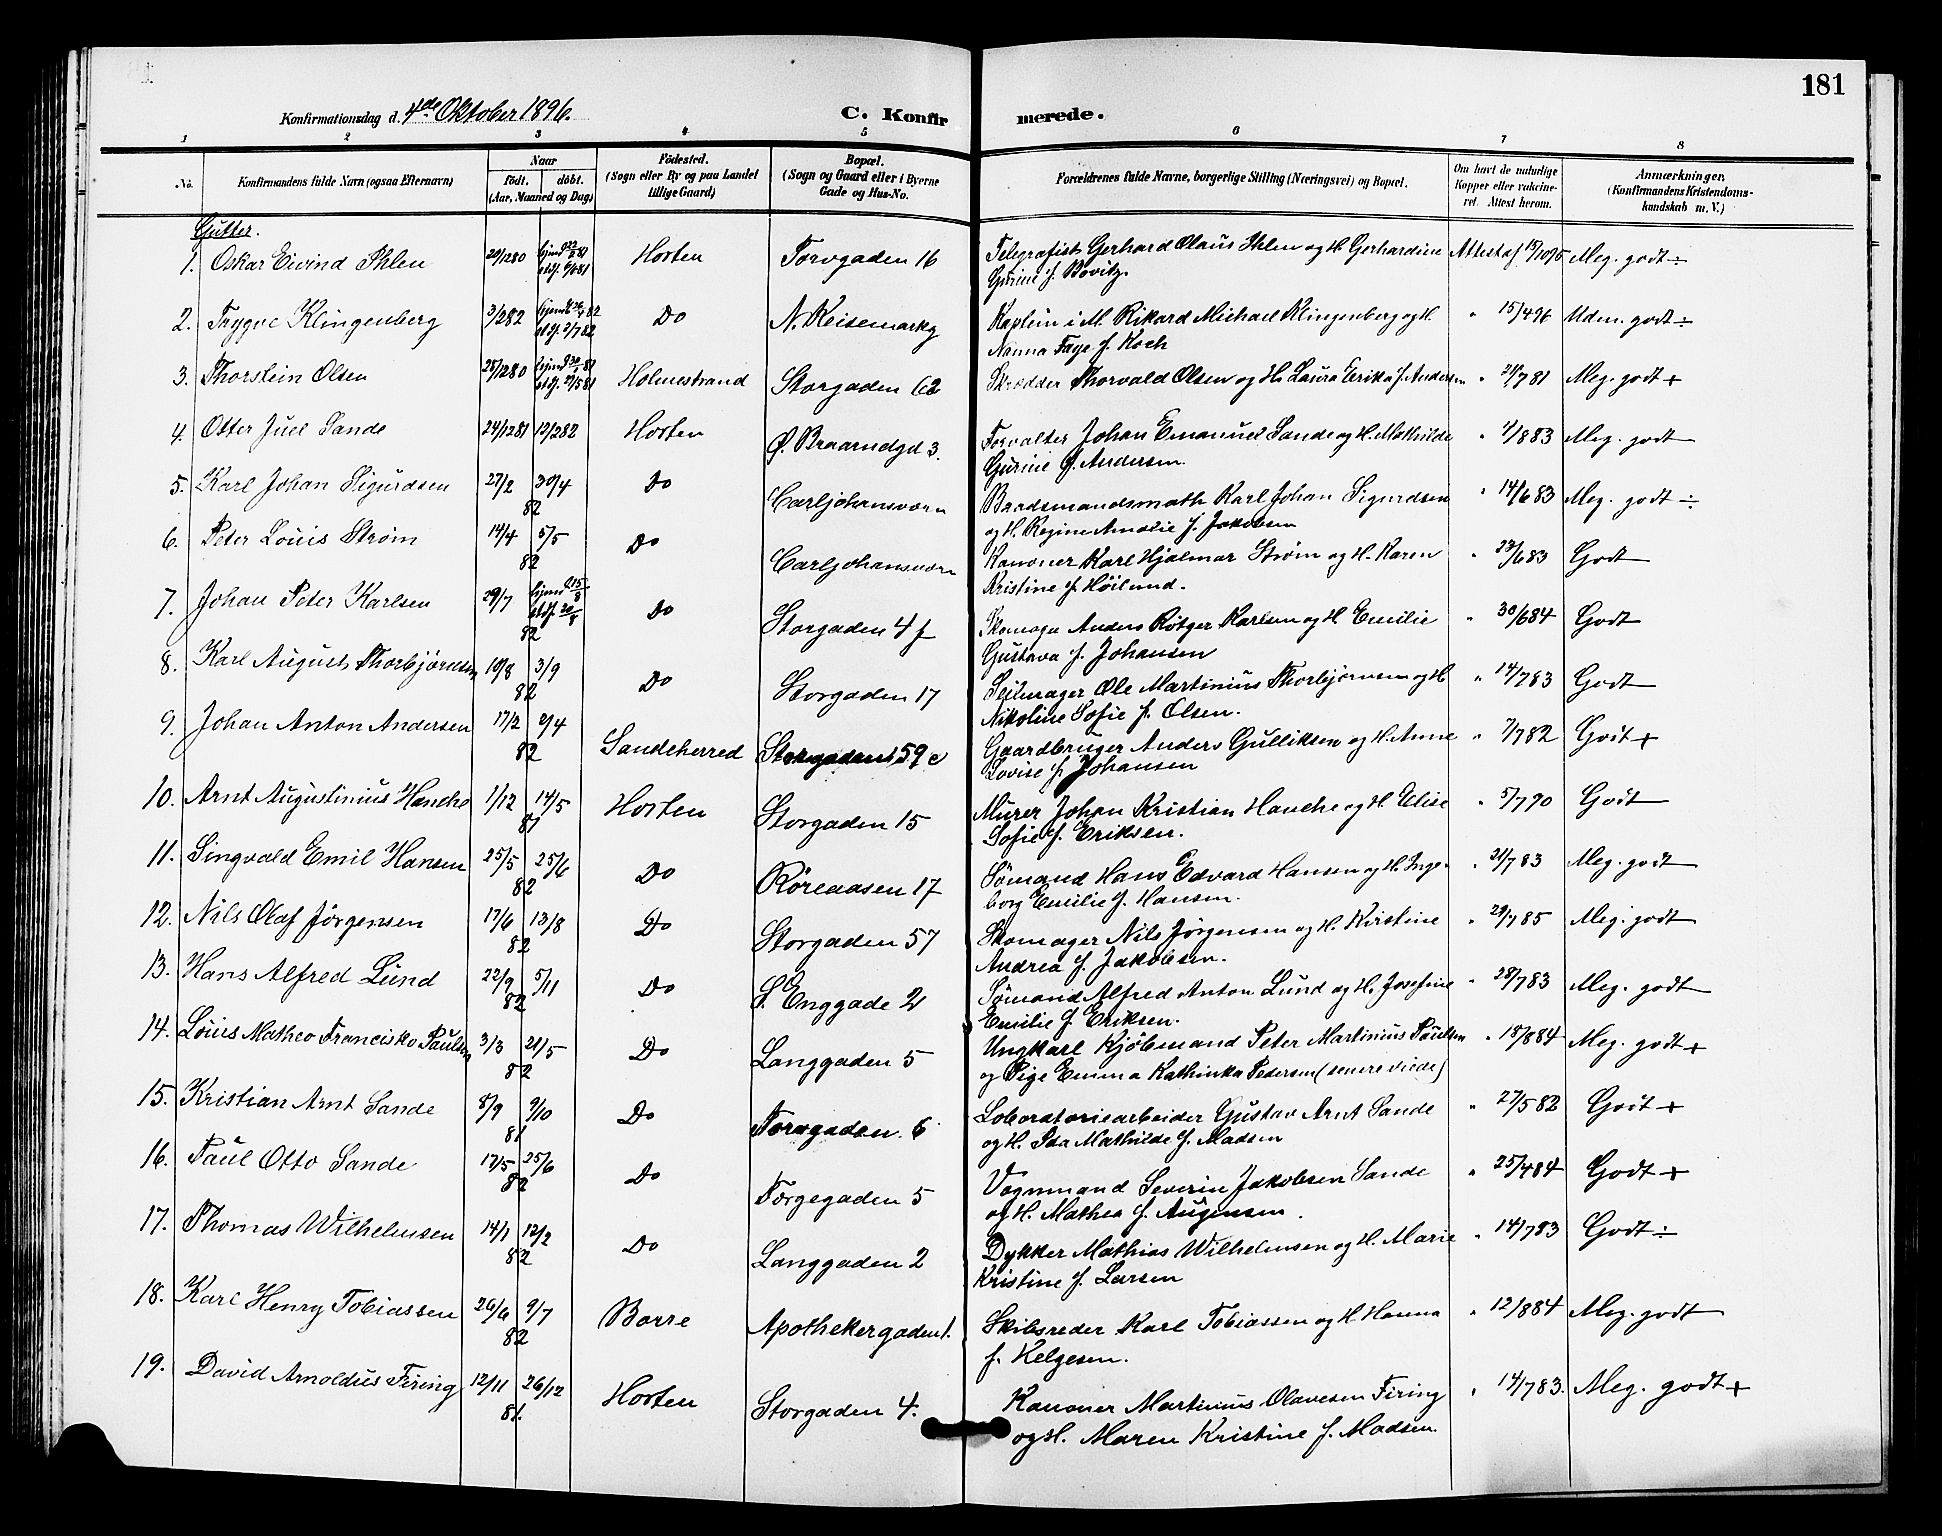 181
Konfirmationsdag d. 4de Oktober 1896.
C. Konfirmerede.
1 2 3 4 5 6 7 8
No.
Konfirmandens fulde Navn (ogsaa Efternavn)
Naar
født. døbt.
(Aar, Maaned og Dag)
Fødested.
(Sogn eller By og paa Landet
tillige Gaard)
Bopæl.
(Sogn og Gaard eller i Byerne
Gade og Hus-No.
Forældrenes fulde Navne, borgerlige Stilling (Næringsvei) og Bopæl.
Om havt de naturlige
Kopper eller vakcine-
ret. Attest herom.
Anmærkninger.
(Konfirmandens Kristendoms-
kundskab m. V.)
Gutter.
1. Oskar Eivind Ihlen 29/12 80 Hjemd. 22/2 81 Horten Torvgaden 16 Telegrafist Gerhard Olaus Ihlen og H. Gerhardine Attest af 15/10 95 Meg. godt ÷
stdf. 6/6 81 Gurine f. Bovitz.
2. Trygve Klingenberg 3/2 82 Hjemd. 26/4 82 Do N. Keisemarkg Kaptein i M. Rikard Michael Klingenberg og H. " 15/4 96 Udm. godt ÷
stdf. 2/7 82 Nanna Faye f. Koch
3. Thorstein Olsen 25/12 80 Hjemd. 30/1 81 Holmestrand Storgaden 62 Skrædder Thorvald Olsen og H. Laura Erika f. Andersen " 21/7 81 Meg. godt +
stdf. 27/5 81
4. Otter Juel Sande 24/12 81 12/2 82 Horten Ø. Braarudgd 3. Forvalter Johan Emanuel Sande og H. Mathilde " 1/8 83 Meg. godt
Gurine f. Andersen.
5. Karl Johan Sigurdsen 27/2 30/4 Do Carljohansværn Baadsmandsmath Karl Johan Sigurdsen " 14/6 83 Meg. godt ÷
82 og H. Regine Amalie f. Jakobsen
6. Peter Louis Strøm 14/4 5/5 Do Carljohansværn Kanoner Karl Hjalmar Strøm og H. Karen " 23/6 83 Godt
82 Kristine f. Höilund.
7. Johan Peter Karlsen 29/7 Hjemd. 15/8 Do Storgaden 4 f Skomager Anders Rötger Karlsen og H Emilie " 30/6 84 Godt
stdf. 20/8
82 Gustava f. Johansen
8. Karl August Thorbjørnsen 10/8 3/9 Do Storgaden 17 Seilmager Ole Martinius Thorbjørnsen og H " 14/7 83 Godt
82 Nikoline Sofie f. Olsen.
9. Johan Anton Andersen 17/2 2/4 Sandeherred Storgaden 59 c Gaardbruger Anders Gulliksen og H. Anne " 7/7 82 Godt +
82 Lovise f. Johansen
10. Arnt Augustinius Hanche 1/12 14/5 Horten Storgaden 15 Murer Johan Kristian Hanche og H. Elise " 5/7 90 Godt
81 Sofie f. Eriksen.
11. Singvald Emil Hansen 25/5 25/6 Do Røreaasen 17 Sömand Hans Edvard Hansen og H. Inge- " 21/7 83 Meg. godt
82 borg Emilie f. Hansen.
12. Nils Olaf Jørgensen 17/6 13/8 Do Storgaden 57 Skomager Nils Jørgensen og H. Kirstine " 29/7 85 Meg. godt
82 Andrea f. Jakobsen.
13. Hans Alfred Lund 22/9 5/11 Do S. Enggade 2 Sömand Alfred Anton Lund og H. Josefine " 28/7 83 Meg. godt
82 Emilie f. Eriksen.
14. Louis Matheo Francisko Paulsen 3/3 21/5 Do Langgaden 5 Ungkarl Kjøbmand Peter Martinius Paulsen " 18/8 84 Meg. godt +
82 og Pige Emma Kathinka Pedersen (senere viede)
15. Kristian Arnt Sande 8/9 9/10 Do Torvgaden 6 Loboratoriearbeider Gustav Arnt Sande " 27/5 82 Godt +
81 og H. Ida Mathilde f. Madsen
16. Paul Otto Sande 17/5 25/6 Do Torgegaden 5 Vognmand Severin Jakobsen Sande " 25/4 84 Godt +
82 og H. Mathea f. Augensen.
17. Thomas Wilhelmsen 14/1 12/2 Do Langgaden 2 Dykker Mathias Wilhelmsen og H. Marie " 14/7 83 Godt ÷
82 Kristine f. Larsen
18. Karl Henry Tobiassen 26/6 9/7 Borre Apothekergaden 1. Skibsreder Karl Tobiassen og H Hanna " 12/8 84 Meg. godt
82 f. Helgesen.
19. David Arnoldus Firing 12/11 26/12 Horten Storgaden 4. Kanoner Martinius Olavesen Firing " 14/7 83. Meg. godt +
81. og H. Maren Kristine f. Madsen.